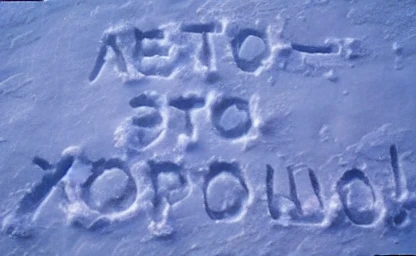 ЛЕТО—
ЭТО
ХОРОШО!